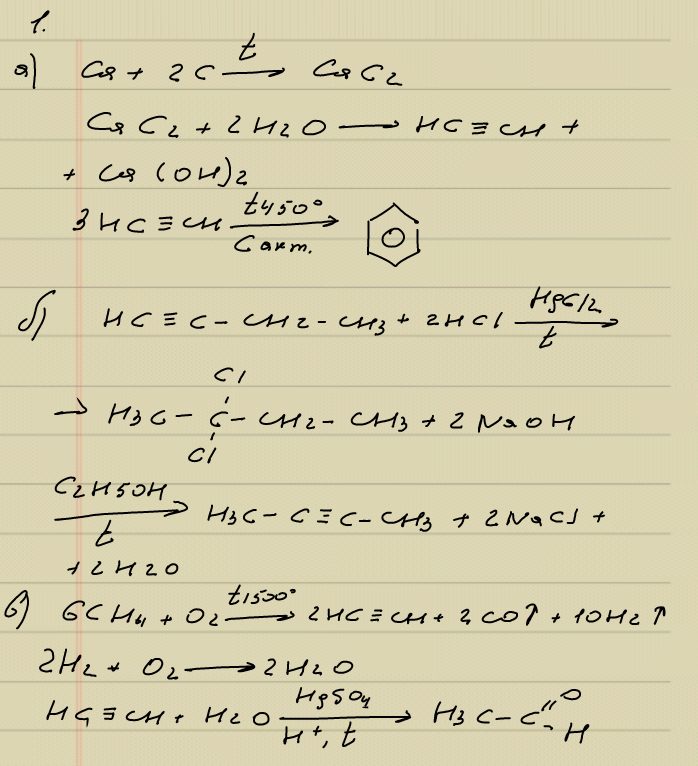 1.
а) Ca + 2C —t→ CaC2
CaC2 + 2H2O ⟶ HC≡CH +
+ Ca(OH)2
3HC≡CH —t450° / C акт.→
б) HC≡C–CH2–CH3 + 2HCl —HgCl2 / t→
Cl
→ H3C–C–CH2–CH3 + 2NaOH
Cl
—C2H5OH / t→ H3C–C≡C–CH3 + 2NaCl +
+ 2H2O
в) 6CH4 + O2 —t1500°→ 2HC≡CH + 2CO↑ + 10H2↑
2H2 + O2 ⟶ 2H2O
HC≡CH + H2O —HgSO4 / H+, t→ H3C–C=O
H